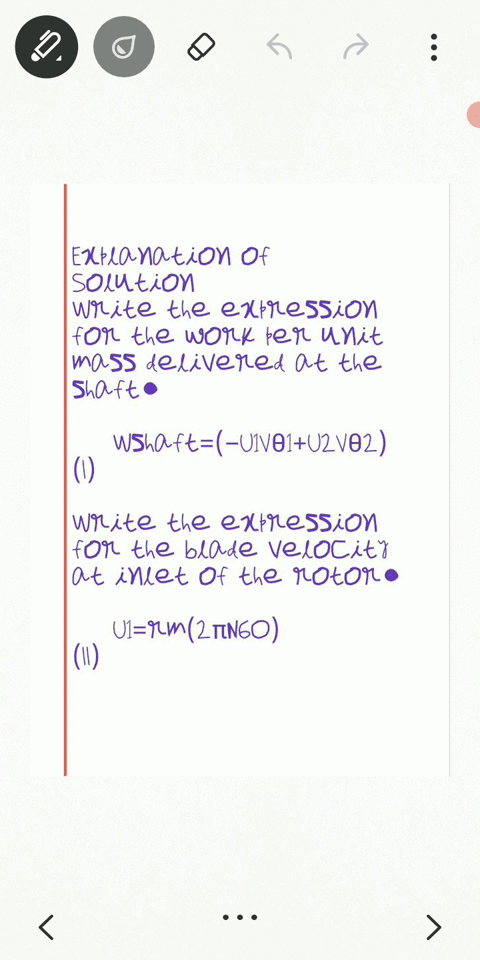 Explanation of
Solution
Write the expression
for the work per unit
mass delivered at the
shaft●
wshaft=(−U1Vθ1+U2Vθ2)
(I)
Write the expression
for the blade velocity
at inlet of the rotor●
U1=rm(2πN60)
(II)